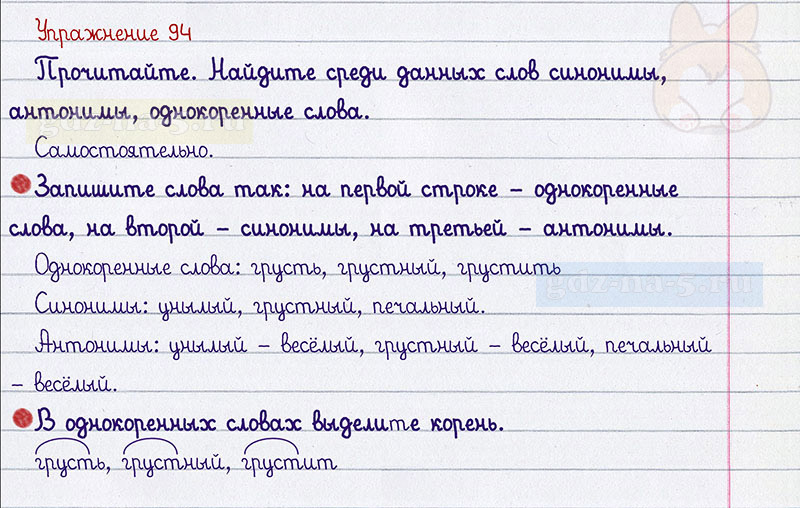 Упражнение 94
Прочитайте. Найдите среди данных слов синонимы,
антонимы, однокоренные слова.
gdz-na-5.ru
Самостоятельно.
Запишите слова так: на первой строке – однокоренные
слова, на второй – синонимы, на третьей – антонимы.
Однокоренные слова: грусть, грустный, грустить
gdz-na-5.ru
Синонимы: унылый, грустный, печальный.
Антонимы: унылый – весёлый, грустный – весёлый, печальный
– весёлый.
В однокоренных словах выделите корень.
грусть, грустный, грустит